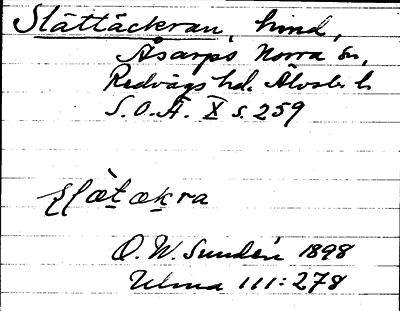 Slättäckran, hmd,
Åsarps Norra sn,
Redvägs hd. Älvsb. l.
S.O.Ä. X s. 259
slætækra
O. W. Sundén 1898
Ulma 111:278